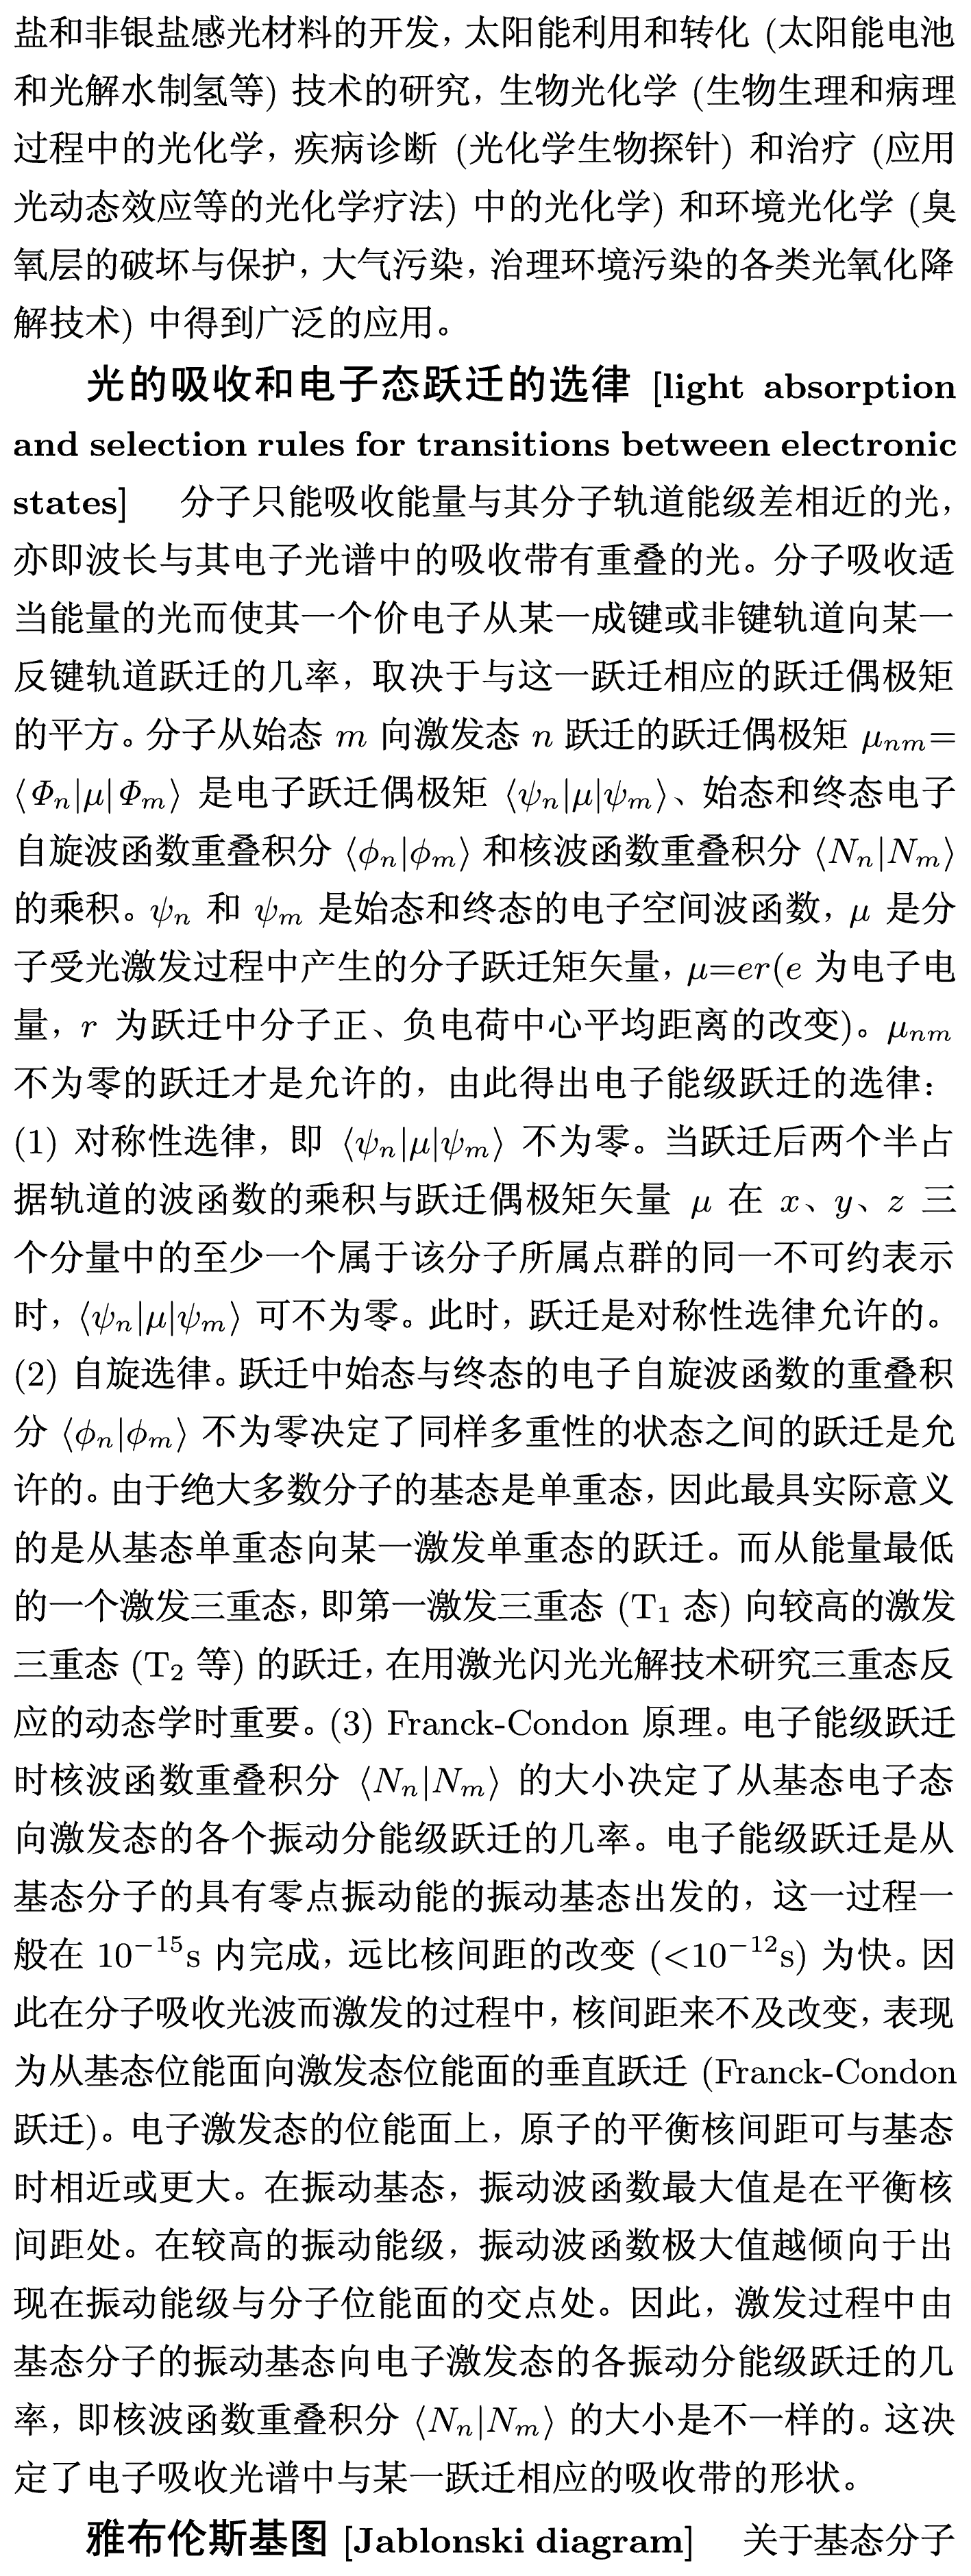 盐和非银盐感光材料的开发, 太阳能利用和转化 (太阳能电池
和光解水制氢等) 技术的研究, 生物光化学 (生物生理和病理
过程中的光化学, 疾病诊断 (光化学生物探针) 和治疗 (应用
光动态效应等的光化学疗法) 中的光化学) 和环境光化学 (臭
氧层的破坏与保护, 大气污染, 治理环境污染的各类光氧化降
解技术) 中得到广泛的应用。
光的吸收和电子态跃迁的选律 [light absorption
and selection rules for transitions between electronic
states] 分子只能吸收能量与其分子轨道能级差相近的光,
亦即波长与其电子光谱中的吸收带有重叠的光。分子吸收适
当能量的光而使其一个价电子从某一成键或非键轨道向某一
反键轨道跃迁的几率, 取决于与这一跃迁相应的跃迁偶极矩
的平方。分子从始态 m 向激发态 n 跃迁的跃迁偶极矩 μₙₘ=
⟨Φₙ|μ|Φₘ⟩ 是电子跃迁偶极矩 ⟨ψₙ|μ|ψₘ⟩、始态和终态电子
自旋波函数重叠积分 ⟨ϕₙ|ϕₘ⟩ 和核波函数重叠积分 ⟨Nₙ|Nₘ⟩
的乘积。ψₙ 和 ψₘ 是始态和终态的电子空间波函数, μ 是分
子受光激发过程中产生的分子跃迁矩矢量, μ=er(e 为电子电
量, r 为跃迁中分子正、负电荷中心平均距离的改变)。μₙₘ
不为零的跃迁才是允许的, 由此得出电子能级跃迁的选律:
(1) 对称性选律, 即 ⟨ψₙ|μ|ψₘ⟩ 不为零。当跃迁后两个半占
据轨道的波函数的乘积与跃迁偶极矩矢量 μ 在 x、y、z 三
个分量中的至少一个属于该分子所属点群的同一不可约表示
时, ⟨ψₙ|μ|ψₘ⟩ 可不为零。此时, 跃迁是对称性选律允许的。
(2) 自旋选律。跃迁中始态与终态的电子自旋波函数的重叠积
分 ⟨ϕₙ|ϕₘ⟩ 不为零决定了同样多重性的状态之间的跃迁是允
许的。由于绝大多数分子的基态是单重态, 因此最具实际意义
的是从基态单重态向某一激发单重态的跃迁。而从能量最低
的一个激发三重态, 即第一激发三重态 (T₁ 态) 向较高的激发
三重态 (T₂ 等) 的跃迁, 在用激光闪光光解技术研究三重态反
应的动态学时重要。(3) Franck-Condon 原理。电子能级跃迁
时核波函数重叠积分 ⟨Nₙ|Nₘ⟩ 的大小决定了从基态电子态
向激发态的各个振动分能级跃迁的几率。电子能级跃迁是从
基态分子的具有零点振动能的振动基态出发的, 这一过程一
般在 10⁻¹⁵s 内完成, 远比核间距的改变 (<10⁻¹²s) 为快。因
此在分子吸收光波而激发的过程中, 核间距来不及改变, 表现
为从基态位能面向激发态位能面的垂直跃迁 (Franck-Condon
跃迁)。电子激发态的位能面上, 原子的平衡核间距可与基态
时相近或更大。在振动基态, 振动波函数最大值是在平衡核
间距处。在较高的振动能级, 振动波函数极大值越倾向于出
现在振动能级与分子位能面的交点处。因此, 激发过程中由
基态分子的振动基态向电子激发态的各振动分能级跃迁的几
率, 即核波函数重叠积分 ⟨Nₙ|Nₘ⟩ 的大小是不一样的。这决
定了电子吸收光谱中与某一跃迁相应的吸收带的形状。
雅布伦斯基图 [Jablonski diagram] 关于基态分子